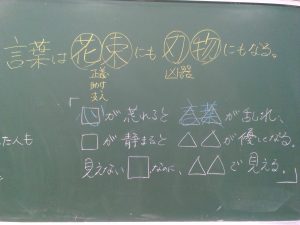 言葉は花束にも刃物にもなる。
助け
支え
凶器
「心が荒れると言葉が乱れ、
□が静まると△△が優しくなる。
見えない□なのに、△△で見える。」
た人も